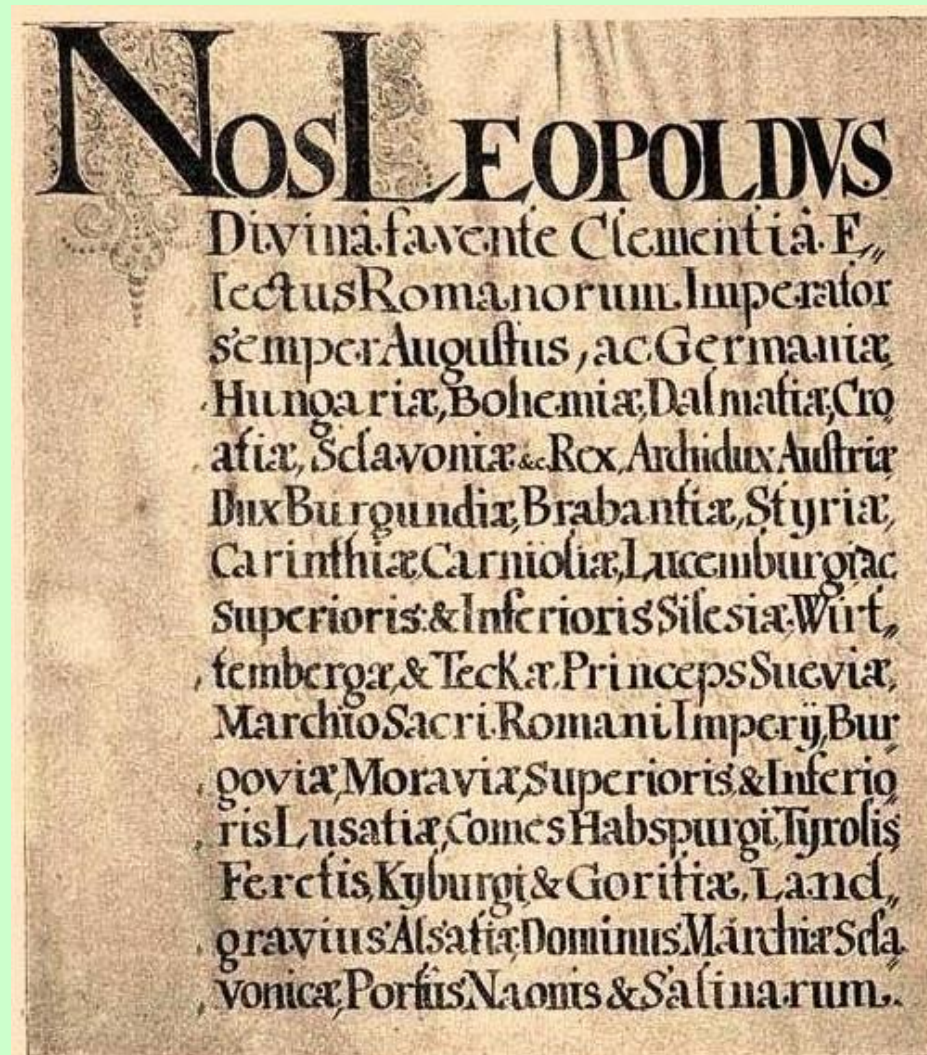 NOS LEOPOLDVS
Divinâ favente Clementiâ E„
lectus Romanorum Imperator
semper Augustus, ac Germaniæ,
Hungariæ, Bohemiæ, Dalmatiæ, Cro„
atiæ, Sclavoniæ &c. Rex, Archidux Austriæ
Dux Burgundiæ, Brabantiæ, Styriæ,
Carinthiæ, Carnioliæ, Lucemburgi, ac
Superioris & Inferioris Silesiæ, Wirt„
tembergæ, & Teckæ, Princeps Sueviæ,
Marchio Sacri Romani Imperij, Bur„
goviæ, Moraviæ, Superioris & Inferio„
ris Lusatiæ, Comes Habspurgi, Tyrolis,
Feretis, Kyburgi, & Goritiæ, Land„
gravius Alsatiæ, Dominus Marchiæ Scla„
vonicæ, Portus Naonis & Salinarum.